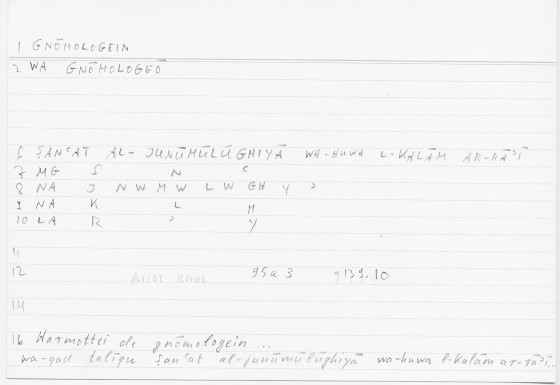 1 GNŌMOLOGEIN
2 WA GNŌMOLOGEŌ
6 ṢANʿAT AL-JUNŪMŪLŪGHIYĀ WA-HUWA L-KALĀM AR-RAʾĪ
7 MG S N C
8 NA J N W M W L W GH Y ʾ
9 NA K L M
10 LA R ʾ Y
11
12 Arist Rhet 95a3 139.10
14
16 Harmottei de gnōmologein ...
wa-qad talīqu ṣanʿat al-junūmūlūghiyā wa-huwa l-kalām ar-raʾī...